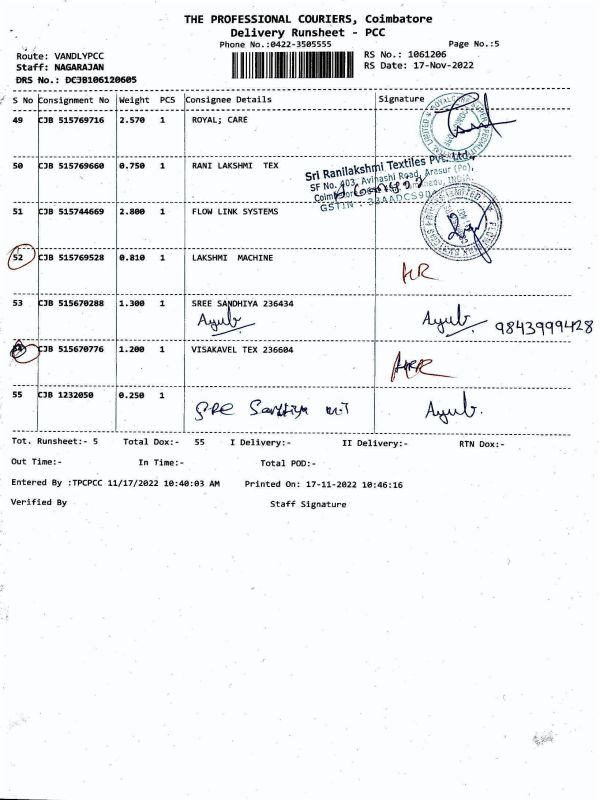 THE PROFESSIONAL COURIERS, Coimbatore
Delivery Runsheet - PCC
Phone No.:0422-3505555
Page No.:5
Route: VANDLYPCC
RS No.: 1061206
Staff: NAGARAJAN
RS Date: 17-Nov-2022
DRS No.: DCJB106120605
S No Consignment No Weight PCS Consignee Details Signature
49 CJB 515769716 2.570 1 ROYAL; CARE
50 CJB 515769660 0.750 1 RANI LAKSHMI TEX
Sri Ranilakshmi Textiles Pvt. Ltd.,
SF No. 403, Avinashi Road, Arasur (Po),
GSTIN : 33AADCS90
51 CJB 515744669 2.800 1 FLOW LINK SYSTEMS
52 CJB 515769528 0.810 1 LAKSHMI MACHINE
53 CJB 515670288 1.300 1 SREE SANDHIYA 236434
Ayub Ayub 9843999428
CJB 515670776 1.200 1 VISAKAVEL TEX 236604
55 CJB 1232050 0.250 1
Ayub.
Tot. Runsheet:- 5 Total Dox:- 55 I Delivery:- II Delivery:- RTN Dox:-
Out Time:- In Time:- Total POD:-
Entered By :TPCPCC 11/17/2022 10:40:03 AM Printed On: 17-11-2022 10:46:16
Verified By Staff Signature